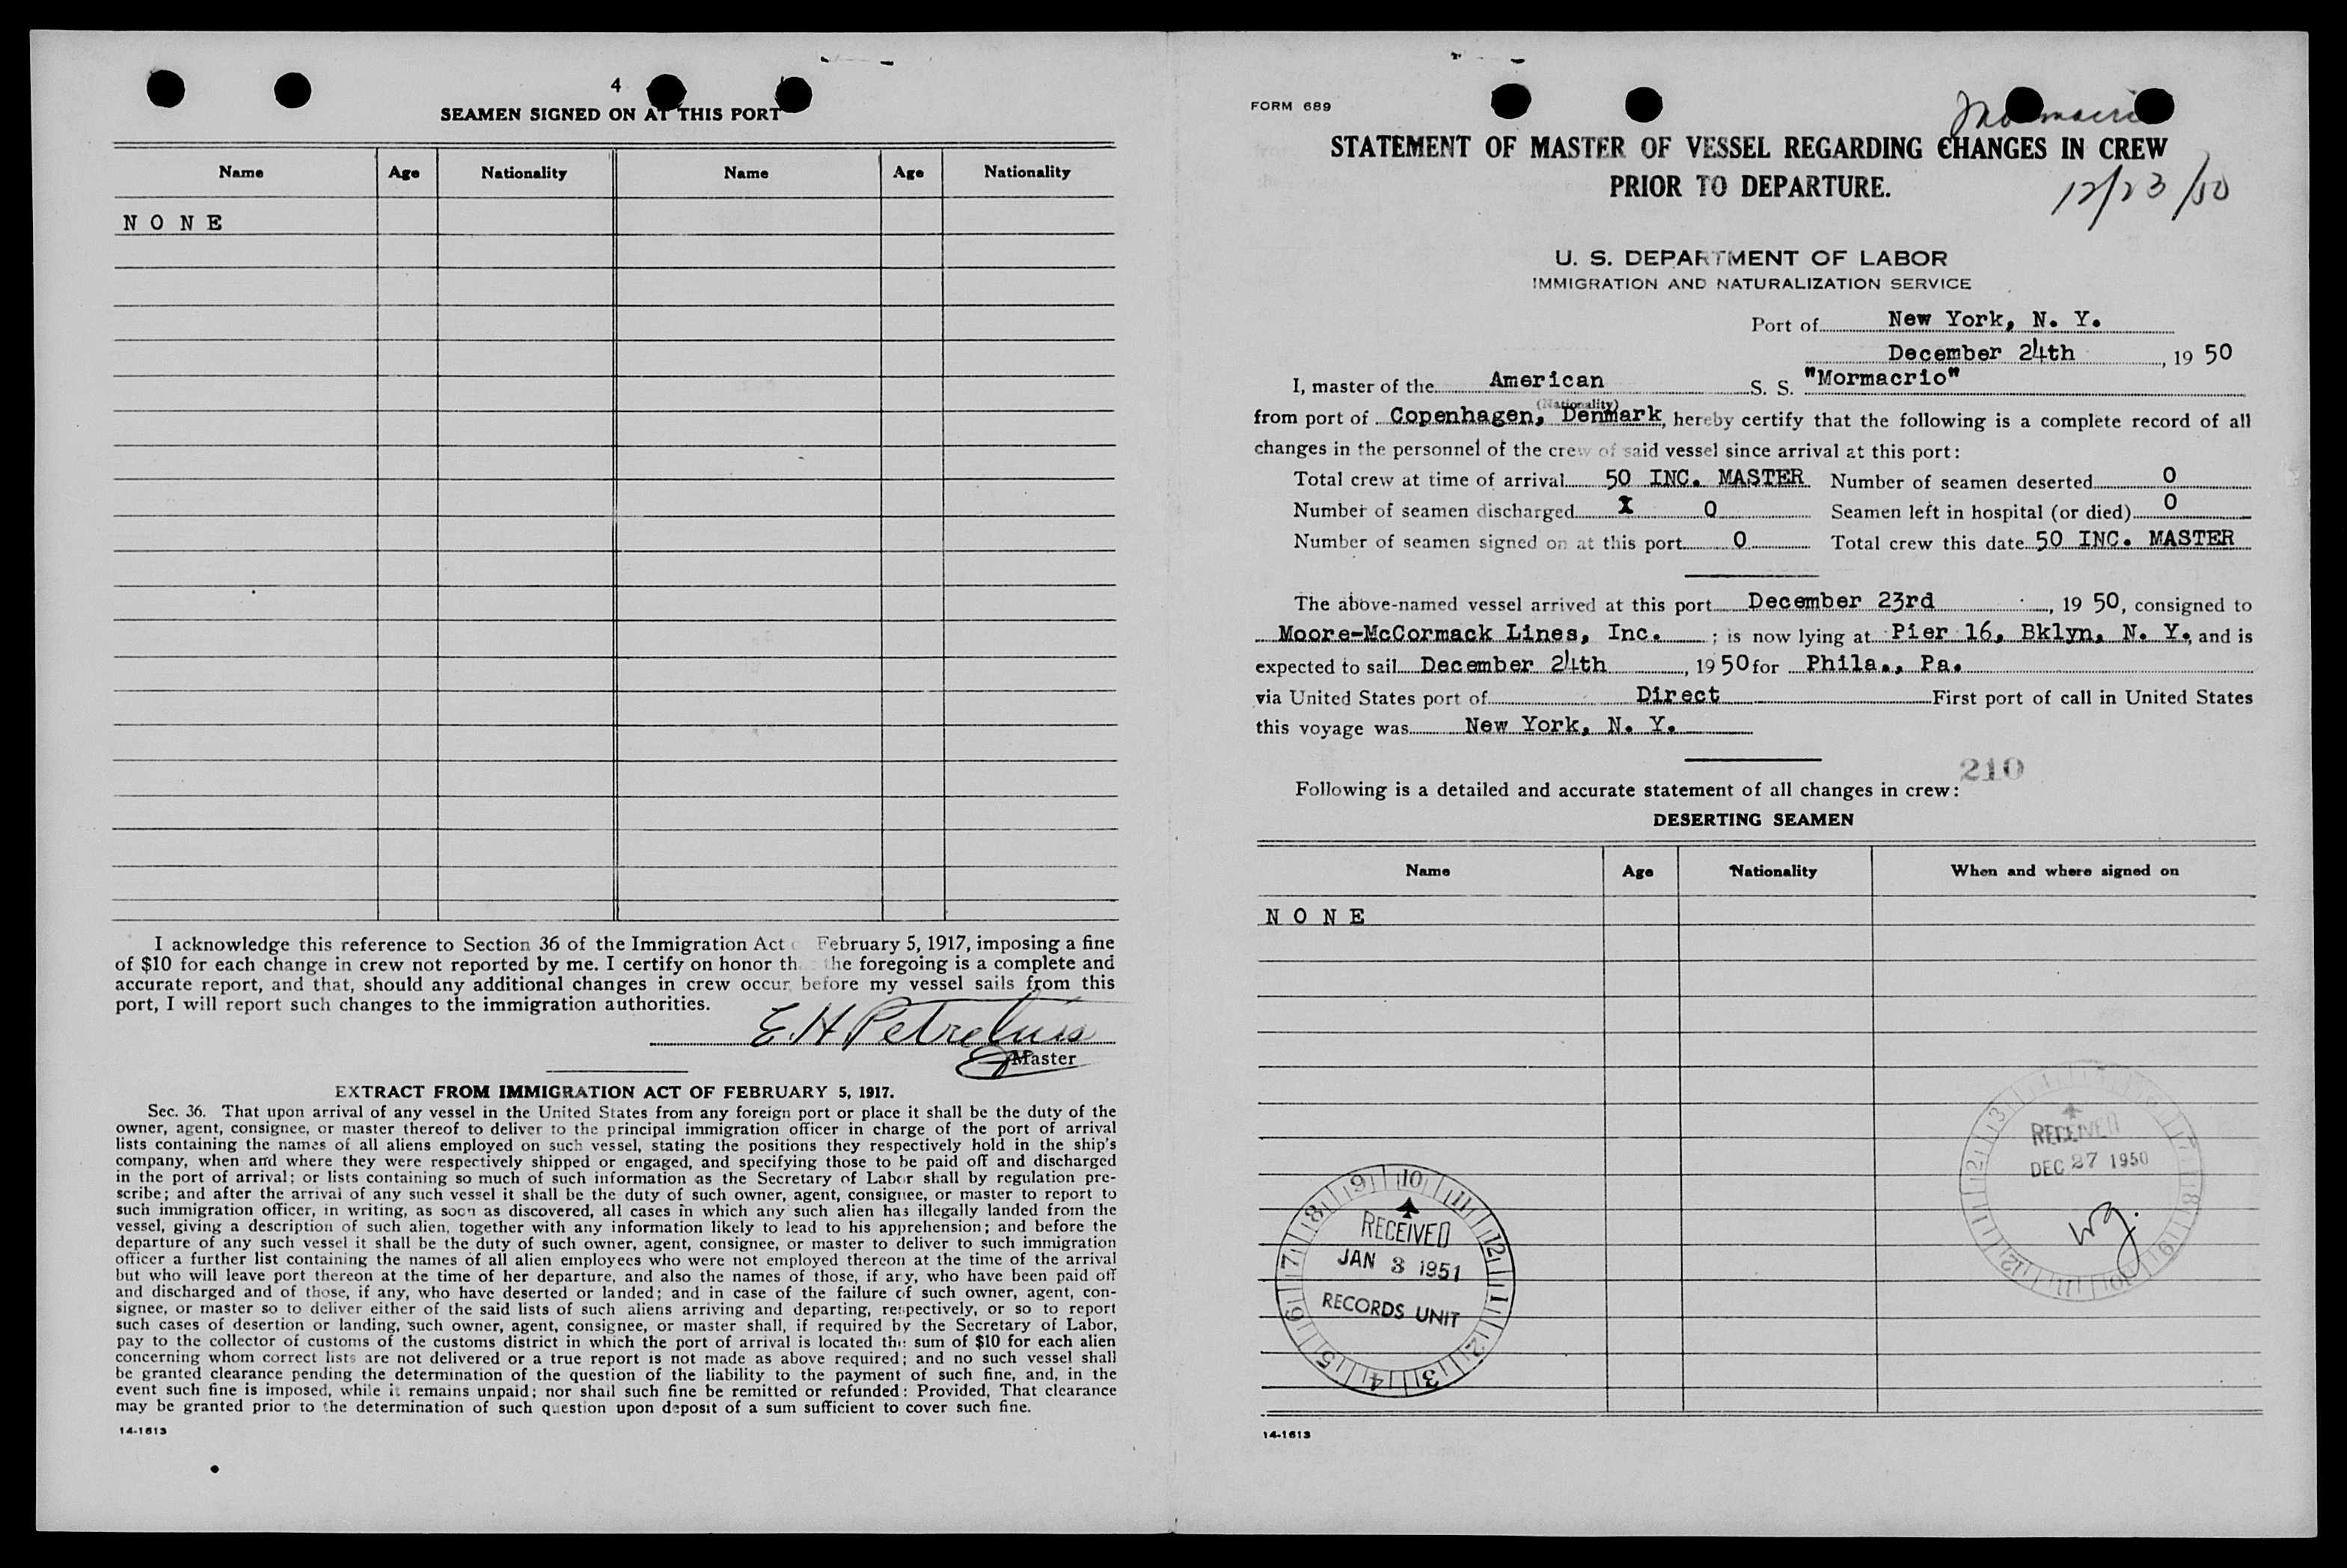 4
SEAMEN SIGNED ON AT THIS PORT
Name Age Nationality Name Age Nationality
N O N E
I acknowledge this reference to Section 36 of the Immigration Act February 5, 1917, imposing a fine
of $10 for each change in crew not reported by me. I certify on honor the foregoing is a complete and
accurate report, and that, should any additional changes in crew occur before my vessel sails from this
port, I will report such changes to the immigration authorities.
E H Petrelius
Master
EXTRACT FROM IMMIGRATION ACT OF FEBRUARY 5, 1917.
Sec. 36. That upon arrival of any vessel in the United States from any foreign port or place it shall be the duty of the
owner, agent, consignee, or master thereof to deliver to the principal immigration officer in charge of the port of arrival
lists containing the names of all aliens employed on such vessel, stating the positions they respectively hold in the ship's
company, when and where they were respectively shipped or engaged, and specifying those to be paid off and discharged
in the port of arrival; or lists containing so much of such information as the Secretary of Labor shall by regulation pre-
scribe; and after the arrival of any such vessel it shall be the duty of such owner, agent, consignee, or master to report to
such immigration officer, in writing, as soon as discovered, all cases in which any such alien has illegally landed from the
vessel, giving a description of such alien, together with any information likely to lead to his apprehension; and before the
departure of any such vessel it shall be the duty of such owner, agent, consignee, or master to deliver to such immigration
officer a further list containing the names of all alien employees who were not employed thereon at the time of the arrival
but who will leave port thereon at the time of her departure, and also the names of those, if any, who have been paid off
and discharged and of those, if any, who have deserted or landed; and in case of the failure of such owner, agent, con-
signee, or master so to deliver either of the said lists of such aliens arriving and departing, respectively, or so to report
such cases of desertion or landing, such owner, agent, consignee, or master shall, if required by the Secretary of Labor,
pay to the collector of customs of the customs district in which the port of arrival is located the sum of $10 for each alien
concerning whom correct lists are not delivered or a true report is not made as above required; and no such vessel shall
be granted clearance pending the determination of the question of the liability to the payment of such fine, and, in the
event such fine is imposed, while it remains unpaid; nor shall such fine be remitted or refunded: Provided, That clearance
may be granted prior to the determination of such question upon deposit of a sum sufficient to cover such fine.
14-1613
FORM 689
STATEMENT OF MASTER OF VESSEL REGARDING CHANGES IN CREW
PRIOR TO DEPARTURE.
12/23/50
U. S. DEPARTMENT OF LABOR
IMMIGRATION AND NATURALIZATION SERVICE
Port of New York, N. Y.
December 24th, 19 50
I, master of the American S. S. "Mormacrio"
(Nationality)
from port of Copenhagen, Denmark, hereby certify that the following is a complete record of all
changes in the personnel of the crew of said vessel since arrival at this port:
Total crew at time of arrival 50 INC. MASTER Number of seamen deserted 0
Number of seamen discharged X 0 Seamen left in hospital (or died) 0
Number of seamen signed on at this port 0 Total crew this date 50 INC. MASTER
The above-named vessel arrived at this port December 23rd, 19 50, consigned to
Moore-McCormack Lines, Inc.; is now lying at Pier 16, Bklyn, N. Y., and is
expected to sail December 24th, 19 50 for Phila., Pa.
via United States port of Direct First port of call in United States
this voyage was New York, N. Y.
210
Following is a detailed and accurate statement of all changes in crew:
DESERTING SEAMEN
Name Age Nationality When and where signed on
N O N E
RECEIVED
DEC 27 1950
RECEIVED
JAN 3 1951
RECORDS UNIT
14-1613